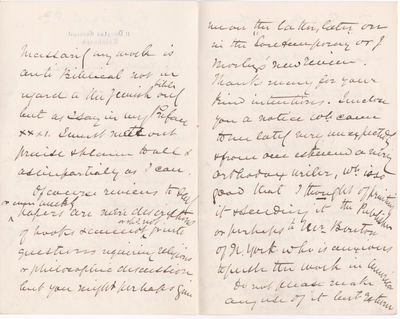 my work is
anti Biblical not in
regard to the Jewish only
but as I say in my Preface
XXXI. I must mete out
praise & blame to all &
as impartially as I can.
Of course reviews in
or weekly
papers are mere descriptions
of books & cannot
questions requiring religious
or philosophic discussion
but you might perhaps
me on the latter, later on
in the Contemporary or J
Morley's new review.
Thanks many for your
kind intentions. I inclose
you a notice wh. came
to me lately very unexpectedly
& from one esteemed a very
orthodox writer, wh. is so
good that I thought of printing
it & sending it to the
or perhaps to Mr Bouton
of N. York who is anxious
to push the work in America
Do not please make
any use of it but return